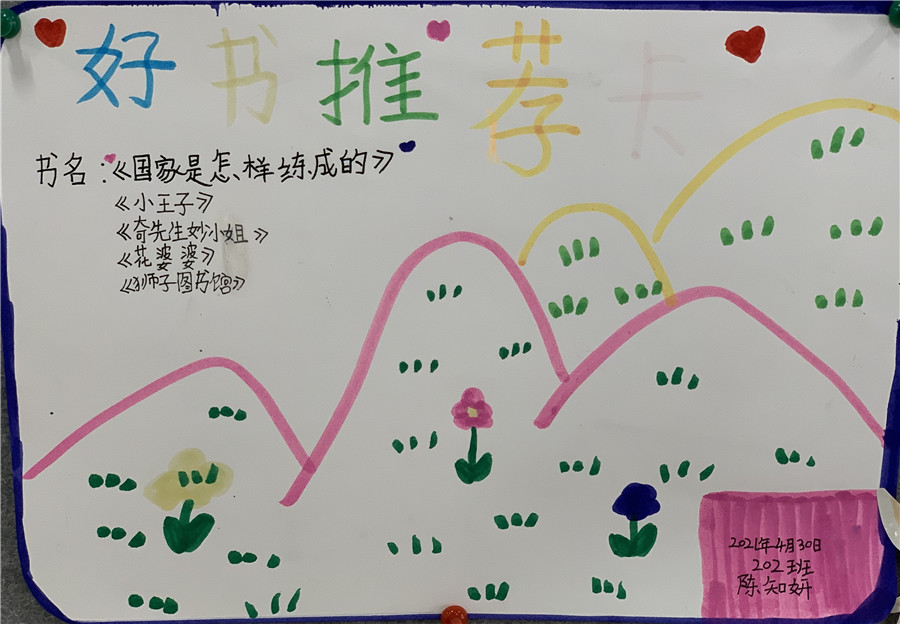 好书推荐卡
书名：《国家是怎样炼成的》
《小王子》
《奇先生妙小姐》
《花婆婆》
《狮子图书馆》
2021年4月30日
202班
陈知妍